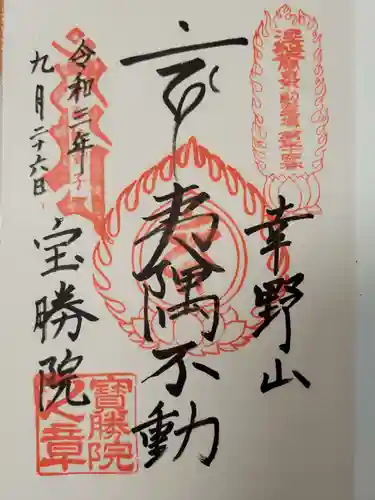 幸野山
夷隅不動
令和三年
九月二十六日
宝勝院
寶勝院
之章